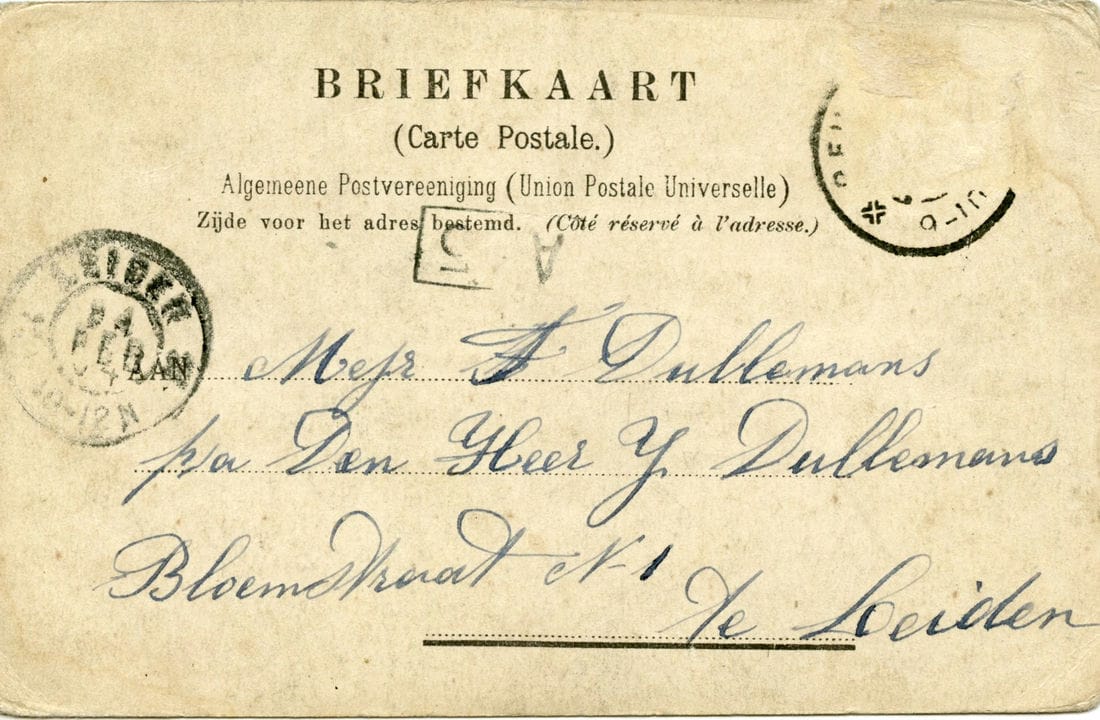 BRIEFKAART
(Carte Postale.)
Algemeene Postvereeniging (Union Postale Universelle)
Zijde voor het adres bestemd. (Côté réservé à l'adresse.)
9-10
5 A
LEIDEN
FEB
10-12N
AAN Mejr F Dullemans
p/a Den Heer Y Dullemans
Bloemstraat N-1
te Leiden